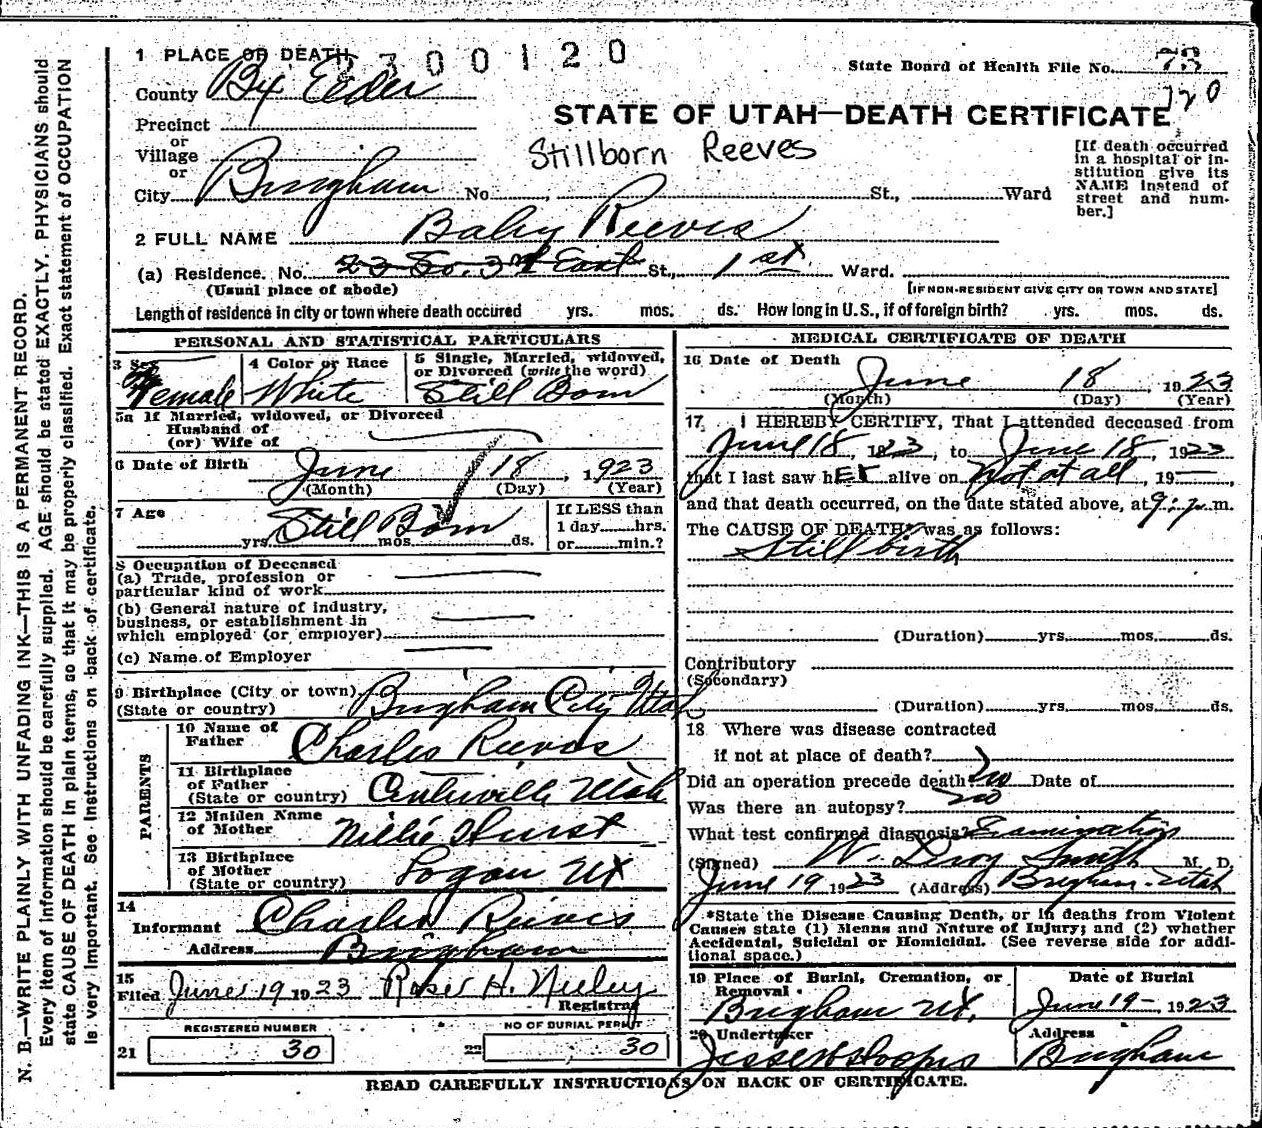 1 PLACE OF DEATH 2300120
State Board of Health File No. 73
120
County Bx Elder
STATE OF UTAH—DEATH CERTIFICATE
Precinct
or
Village
or
Stillborn Reeves
[If death occurred in a hospital or institution give its NAME instead of street and number.]
City Brigham No. St., Ward
2 FULL NAME Baby Reeves
(a) Residence. No. 23 So. 3rd East St., 1st Ward.
(Usual place of abode) [IF NON-RESIDENT GIVE CITY OR TOWN AND STATE]
Length of residence in city or town where death occured yrs. mos. ds. How long in U.S., if of foreign birth? yrs. mos. ds.
PERSONAL AND STATISTICAL PARTICULARS
3 Sex Female
4 Color or Race White
5 Single, Married, widowed, or Divorced (write the word) Still Born
5a If Married, widowed, or Divorced
Husband of
(or) Wife of
6 Date of Birth June 18, 1923
(Month) (Day) (Year)
7 Age Still Born
yrs. mos. ds.
If LESS than
1 day hrs.
or min.?
8 Occupation of Deceased
(a) Trade, profession or
particular kind of work
(b) General nature of industry,
business, or establishment in
which employed (or employer)
(c) Name of Employer
9 Birthplace (City or town) Brigham City Utah
(State or country)
PARENTS
10 Name of Father Charles Reeves
11 Birthplace of Father Centerville Utah
(State or country)
12 Maiden Name of Mother Nellie Hurst
13 Birthplace of Mother Logan Ut
(State or country)
14
Informant Charles Reeves
Address Brigham
15
Filed June 19 1923
Registrar
REGISTERED NUMBER
21 30
NO OF BURIAL PERMIT
22 30
MEDICAL CERTIFICATE OF DEATH
16 Date of Death June 18, 1923
(Month) (Day) (Year)
17 I HEREBY CERTIFY, That I attended deceased from
June 18, 1923, to June 18, 1923
that I last saw hEr alive on Not at all, 19—,
and that death occurred, on the date stated above, at 9:- p. m.
The CAUSE OF DEATH* was as follows:
Still birth
(Duration) yrs. mos. ds.
Contributory
(Secondary)
(Duration) yrs. mos. ds.
18 Where was disease contracted
if not at place of death?
Did an operation precede death? no Date of
Was there an autopsy? no
What test confirmed diagnosis? Examination
(Signed) W. Leroy Smith M. D.
June 19 1923 (Address) Brigham-Utah
*State the Disease Causing Death, or in deaths from Violent
Causes state (1) Means and Nature of Injury; and (2) whether
Accidental, Suicidal or Homicidal. (See reverse side for addi-
tional space.)
19 Place of Burial, Cremation, or Removal Brigham Ut.
Date of Burial
June 19- 1923
20 Undertaker
Address
Brigham
READ CAREFULLY INSTRUCTIONS ON BACK OF CERTIFICATE.
N. B.—WRITE PLAINLY WITH UNFADING INK—THIS IS A PERMANENT RECORD.
Every item of information should be carefully supplied. AGE should be stated EXACTLY. PHYSICIANS should
state CAUSE OF DEATH in plain terms, so that it may be properly classified. Exact statement of OCCUPATION
is very important. See instructions on back of certificate.